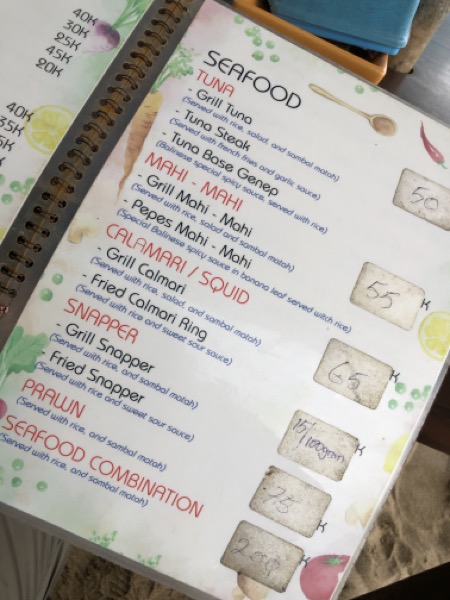 40K
30K
25K
45K
20K
40K
35K
SEAFOOD
TUNA
- Grill Tuna
(Served with rice, salad, and sambal matah)
- Tuna Steak
(Served with french fries and garlic sauce)
- Tuna Base Genep
(Balinese special spicy sauce, served with rice)
50
MAHI - MAHI
- Grill Mahi - Mahi
(Served with rice, salad and sambal matah)
- Pepes Mahi - Mahi
(Special Balinese spicy sauce in banana leaf served witch rice)
55 K
CALAMARI / SQUID
- Grill Calmari
(Served with rice, salad, and sambal matah)
- Fried Calmari Ring
(Served with rice and sweet sour sauce)
65 K
SNAPPER
- Grill Snapper
(Served with rice, and sambal matah)
- Fried Snapper
(Served with rice and sweet sour sauce)
15/100gram K
PRAWN
(Served with rice, and sambal matah)
75 K
SEAFOOD COMBINATION
(Served with rice, and sambal matah)
200 K